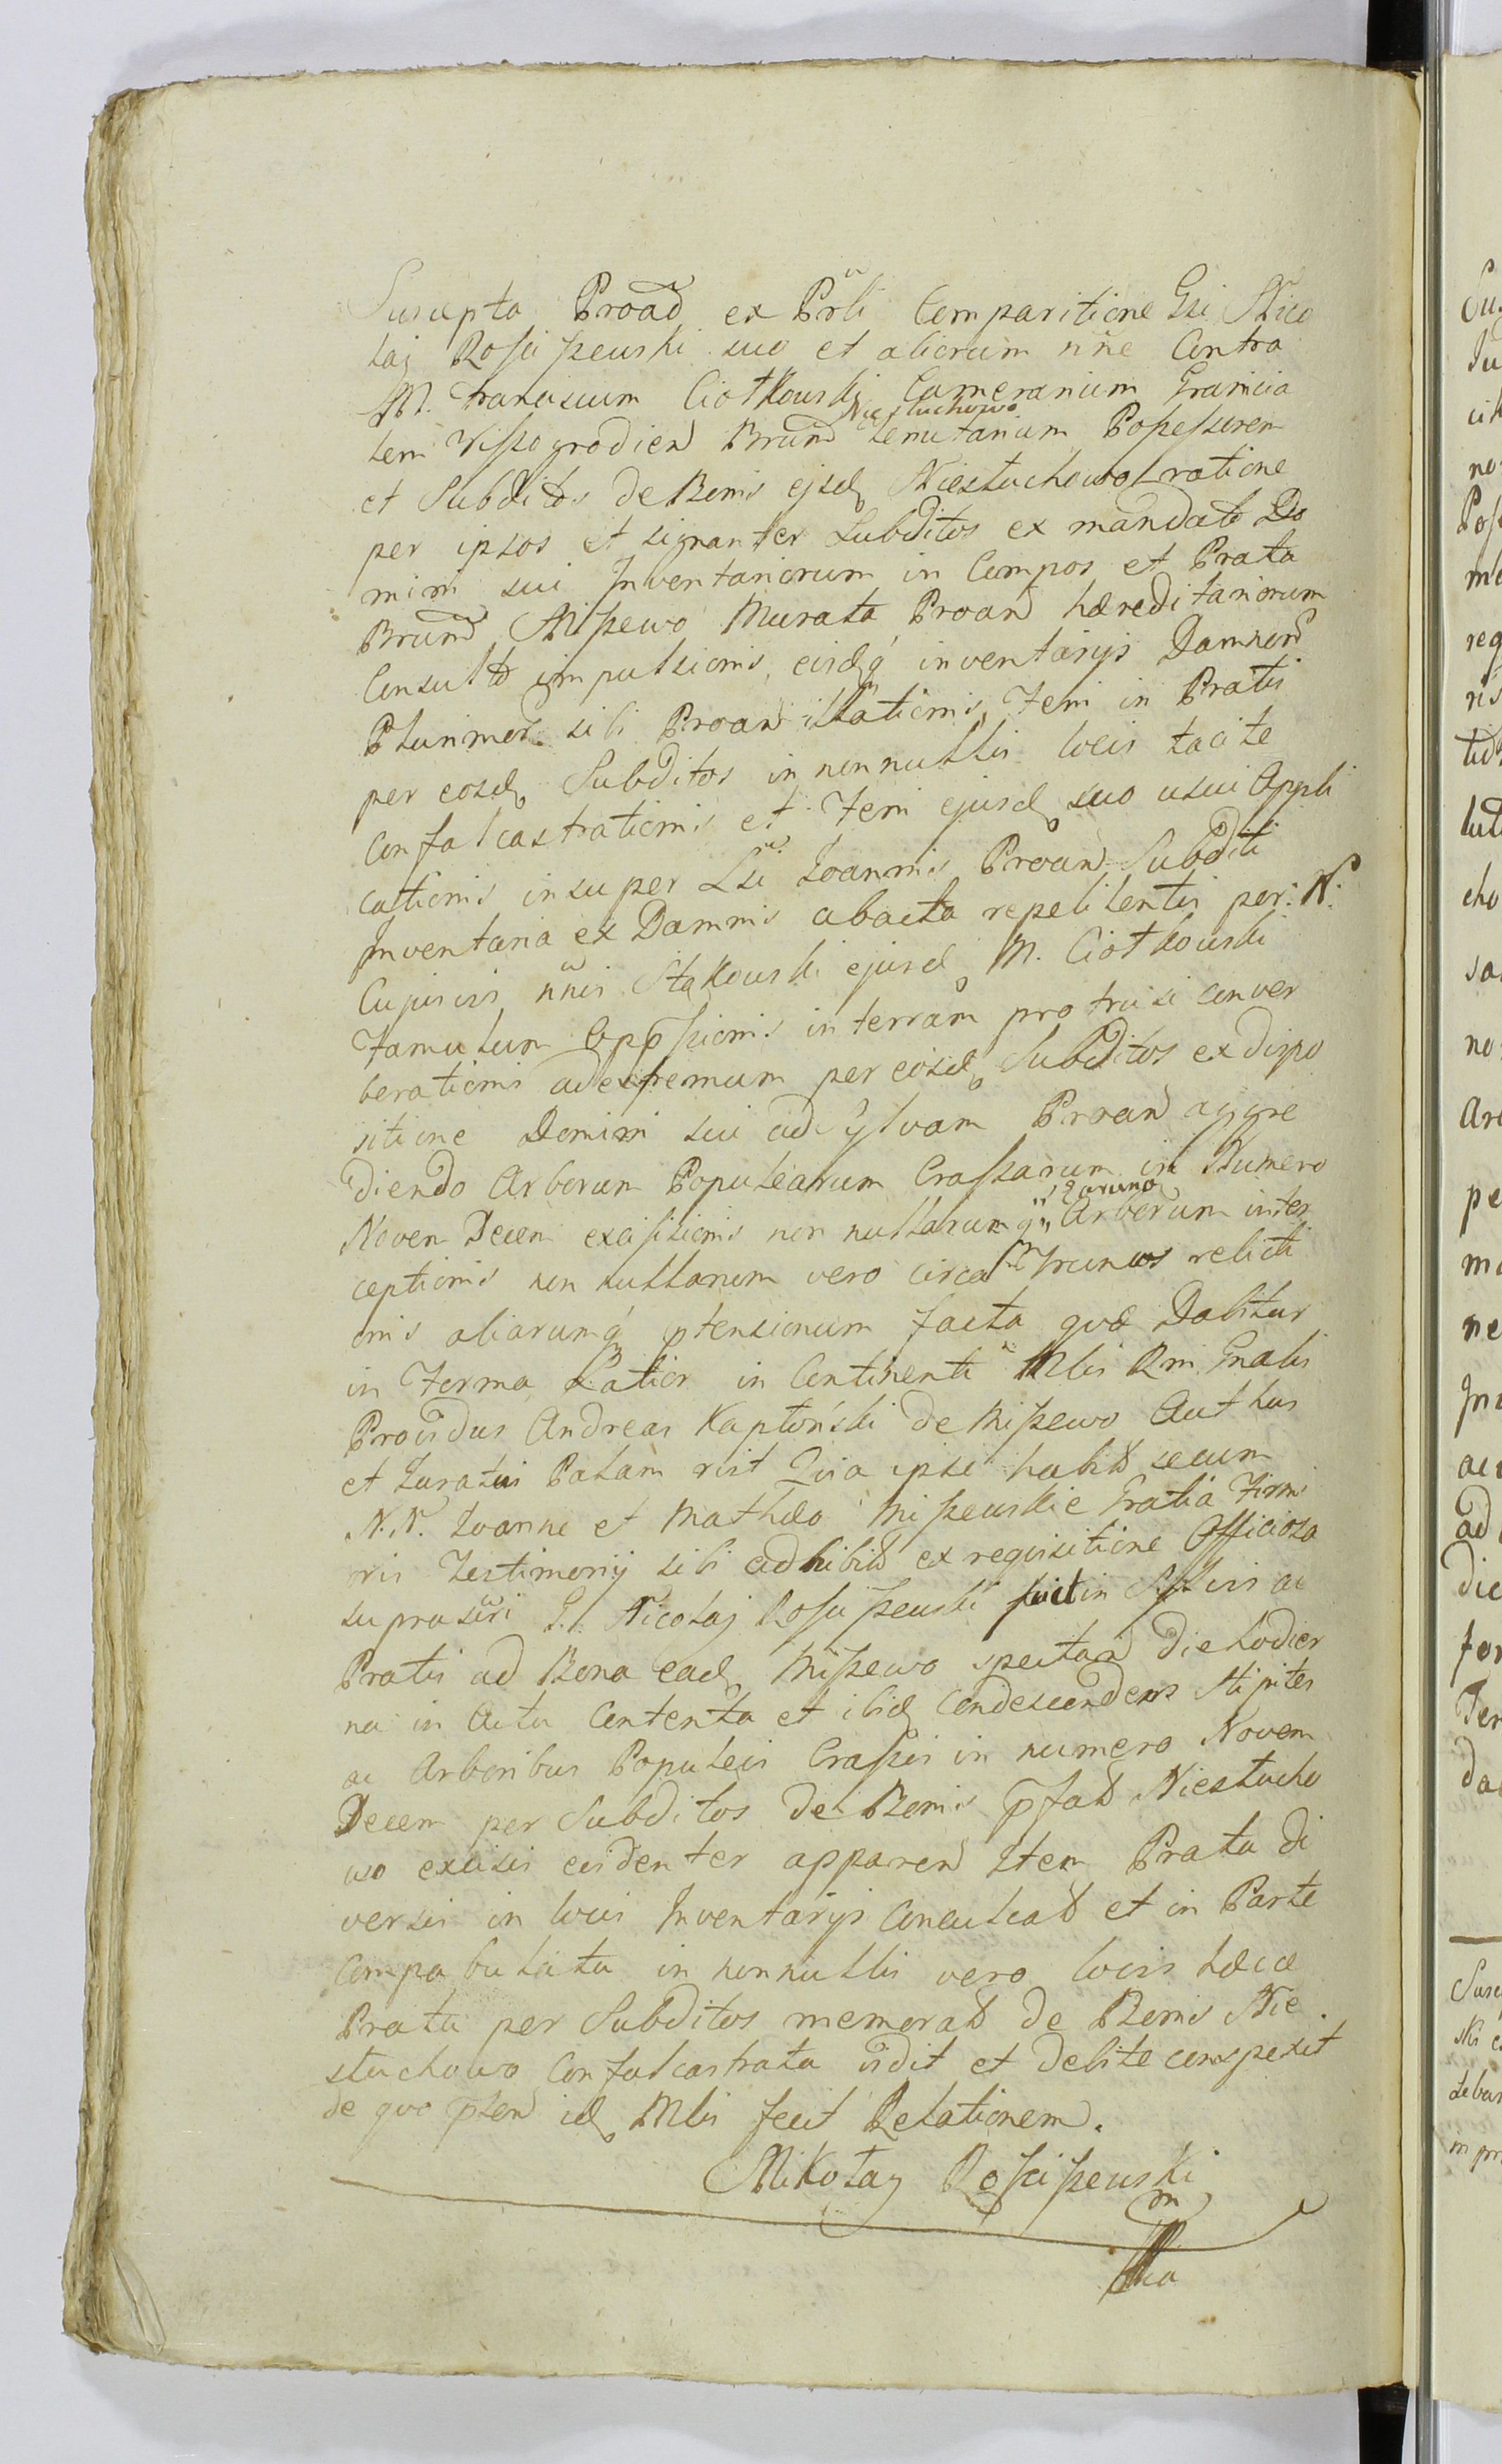 Suscepta Proad ex Prli Comparitione Gsi Nico
laj Rościszewski suo et aliorum nñe Contra
M. Franciscum Ciołkowski Camerarium Granicia
lem Wissogrodien Brum Niestuchowo tenutarium Possessorem
et Subditos de Bonis ejsd Niestuchowo ratione
per ipsos et signanter Subditos ex mandato Do
mini sui Inventariorum in Campos et Prata
Brum Miszewo Murata Proan hæreditariorum
Consulto impulsionis, eisdq inventarijs Damnor
Plurimor sibi Proan illationis, Feni in Pratis
per eosd Subditos in nonnullis locis tacite
Confalcastrationis et Feni ejusd suo usui Appli
cationis insuper Lsi Joannis Proan Subditi
Inventaria ex Damnis abacta repetentis per: N:
Cujusvis nñis Stakowski ejusd M. Ciołkowski
Famulum Oppssionis in terram protrusi conver
berationis ad extremum per eosd Subditos ex dispo
sitione Domini sui ad Sylvam Proan aggre
diendo Arborum Populearum Crassarum in Numero
Novem Decem excissionis non nullarum q Arborum inter
ceptionis non nullarum vero circa Truncos relicti
onis aliarumq ptensionum facta quæ Dabitur
in Forma Latior in Continenti Mlis Rni Gnalis
Providus Andreas Kaptoński de Miszewo Authus
et Juratus Palam rist Quia ipse habit secum
N.N. Joanne et Mathæo Miszewskie Gratia Firmi
oris Testimonij sibi adhibit ex requisitione Officiosa
suprasñri G. Nicolaj Rościszewski fuit in Sylvis ac
Pratis ad Bona ead Miszewo spectan die hodier
na in Actu Contenta et ibid Condescendens Stipites
ac Arboribus Populeis Crassis in numero Novem
Decem per Subditos de Bonis pfat Niestucho
wo excisis evidenter apparen Item Prata di
versis in locis Inventarijs Conculcat et in Parte
Compabulata in nonnullis vero locis hæc
Prata per Subditos memorat de Bonis Nie
stuchowo Confalcastrata vidit et debite conspexit
de quo pten id Mlis fecit Relationem.
Mikołay Rościszewski
m